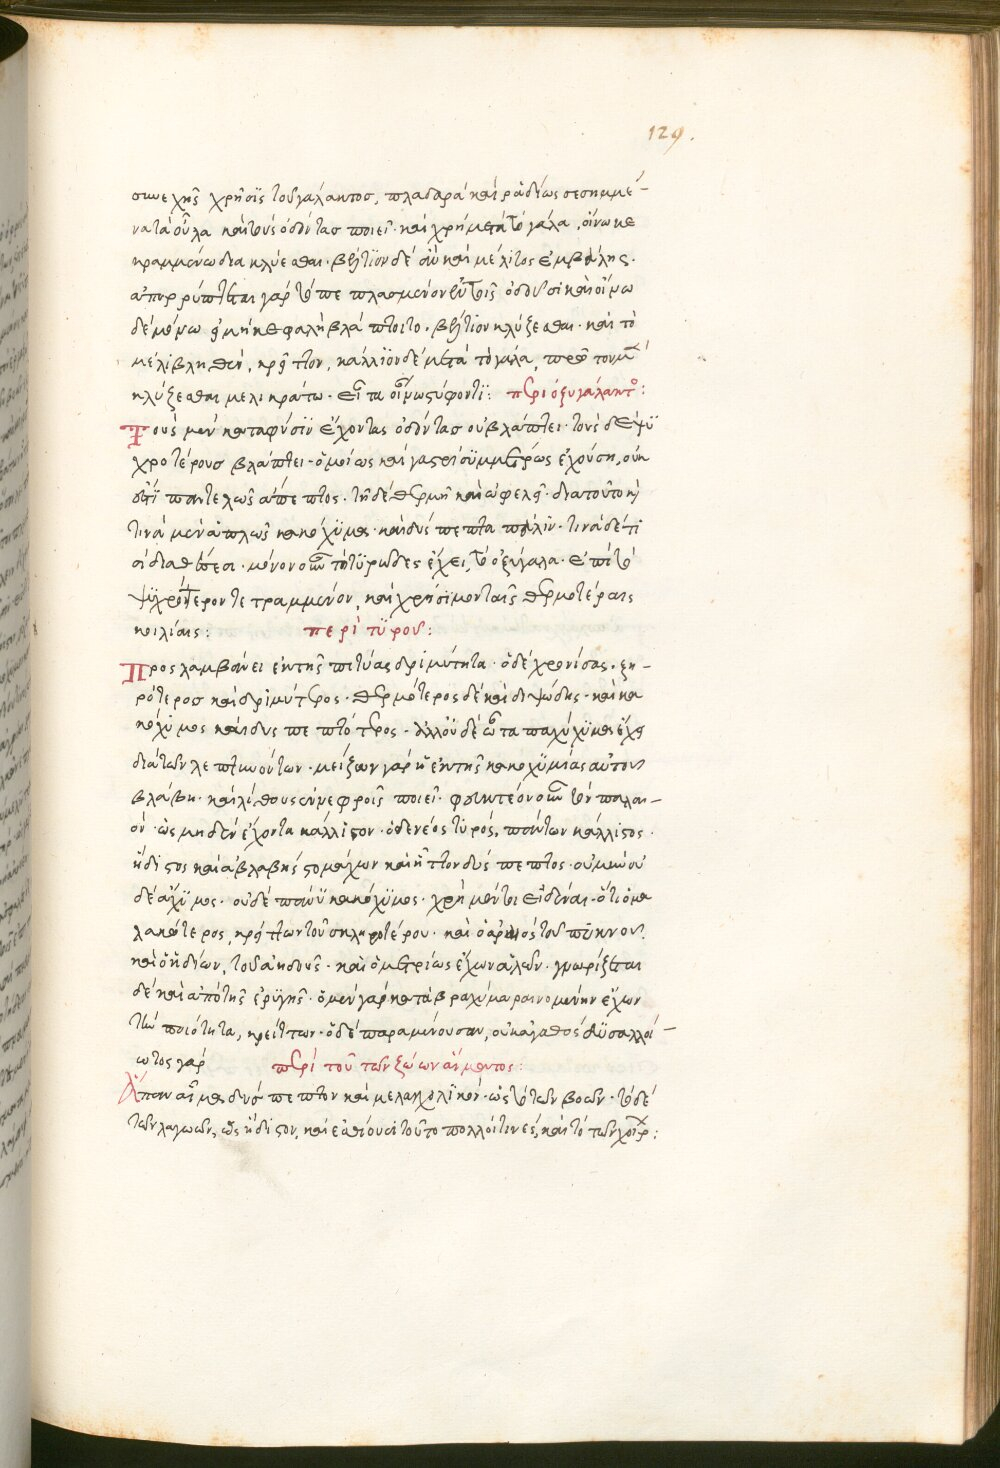 129.
συνεχὴς χρῆσϊς τοῦ γάλακτος, πλαδαρὰ καὶ ῥαδίως σεσημμέ-
να τὰ οὖλα καὶ τοὺς ὀδόντας ποιεῖ· καὶ χρὴ μετὰ τὸ γάλα, οἴνω κε
κραμμένω διακλύζεσθαι· βέλτϊον δὲ εἰ καὶ μέλιτος ἐμβάλης·
ἀπορρύπτεται γὰρ τὸ περιπλασμένον αὐτοῖς ὀδοῦσι καὶ οἴνω
δὲ μόνω εἰ μὴ κεφαλὴ βλάπτοιτο· βέλτιον κλύζεσθαι· καὶ τὸ
μέλι βληθὲν, κρεῖττον, κάλλϊον δὲ μετὰ τὸ γάλα, πρῶτον μὲν
κλύζεσθαι μελικράτω· εἶτα οἴνω στύφοντϊ: περὶ ὀξυγάλακτος:
Τοὺς μὲν κατὰ φύσϊν ἔχοντας ὀδόντας οὐ βλάπτει· τοὺς δὲ ψϋ
χροτέρους βλάπτει· ὁμοίως καὶ γαστρὶ συμμέτρως ἐχούση, οὐκ
ἔστϊ παντελῶς ἄπεπτος· τῆ δὲ θερμῆ καὶ ὠφελεῖ· διὰ τοῦτο καὶ
τινὰ μὲν ἁπλῶς κακόχϋμα· καὶ δύσπεπτα πάλϊν· τινὰ δέ τι
σι διαθέσεσι· μόνον οὖν τὸ τϋρῶδες ἔχει, τὸ ὀξύγαλα· ἐπὶ τὸ
ψϋχρότερον τετραμμένον, καὶ χρήσϊμον ταῖς θερμοτέραις
κοιλίαις: περὶ τϋροῦ:
Προσλαμβάνει ἐκ τῆς πιτύας δρϊμύτητα· ὁ δὲ χρονίσας, ξη-
ρότερος καὶ δρϊμύτερος· θερμότερος δὲ καὶ διψώδης· καὶ κα
κόχϋμος καὶ δυσπεπτότερος· ἀλλ' οὐδὲ ὦτα παχύχϋμα ἔχει
διὰ τῶν λεπτυνόντων· μείζων γὰρ ἡ ἐκ τῆς κακοχϋμίας αὐτοῦ
βλάβη· καὶ λίθους ἐν νεφροῖς ποιεῖ· φευκτέον οὖν τὸν παλαι-
όν· ὡς μηδὲν ἔχοντα κάλλϊστον· ὁ δὲ νέος τϋρός, πάντων κάλλϊστος·
ἥδιστος καὶ ἀβλαβὴς στομάχων καὶ ἧττον δύσπεπτος· οὐ μὴν οὐ
δὲ ἄχϋμος· οὐδὲ πάνϋ κακόχϋμος· χρὴ μέντοι εἰδέναι· ὅτι ὁ μα
λακώτερος, κρείττων τοῦ σκληροτέρου· καὶ ὁ ἀραιὸς τοῦ πυκνοῦ·
καὶ ὁ ἡδίων, τοῦ ἀηδοῦς· καὶ ὁ μετρίως ἔχων ἁλῶν· γνωρίζεται
δὲ καὶ ἀπὸ τῆς ἐρϋγῆς· ὁ μὲν γὰρ κατὰ βραχὺ μαραινομένην ἔχων
τὴν ποιότητα, κρείττων· ὁ δὲ παραμένουσαν, οὐκ ἀγαθός δϋσαλλοί-
ωτος γάρ περὶ τοῦ τῶν ζώων αἵματος:
Ἅπαν αἷμα δύσπεπτον καὶ μελαγχολϊκόν· ὡς τὸ τῶν βοῶν· τὸ δὲ
τῶν λαγωῶν, ὡς ἥδιστον, καὶ ἐσθίουσι τοῦτο πολλοί τινες, καὶ τὸ τῶν χοίρων: